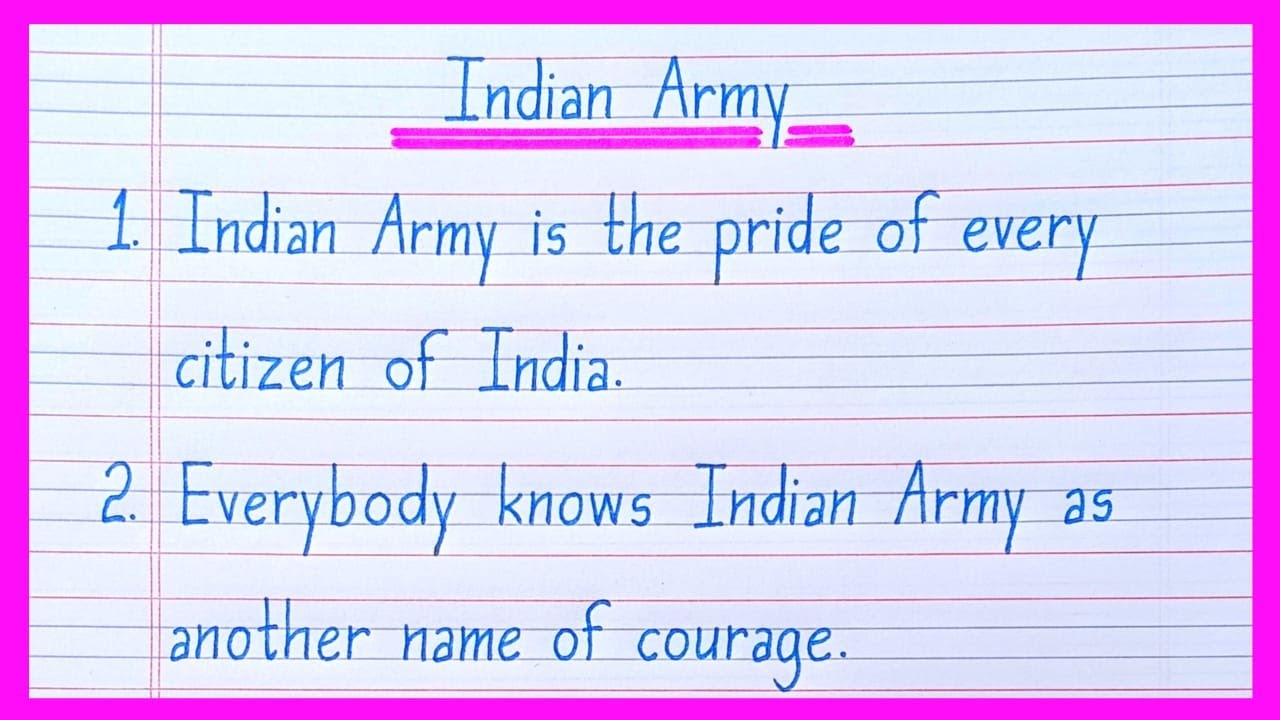 Indian Army
1. Indian Army is the pride of every
citizen of India.
2. Everybody knows Indian Army as
another name of courage.